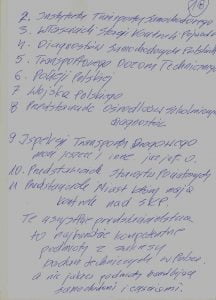 2. Instytutu Transportu Samochodowego
3. Właścicieli Stacji Kontroli Pojazdów
4. Diagnostów Samochodowych
5. Transportowego Dozoru Technicznego
6. Policji Polskiej
7. Wojska Polskiego
8 Przedstawiciele Ośrodków Szkolnictwa
diagnostów
9 Inspekcji Transportu Drogowego
10. Przedstawiciele Starostw Powiatowych
11 Przedstawiciele Miast które mają
kontrolę nad SKP.
Te wszystkie przedstawicielstwa
to najbardziej kompetentne
podmioty z zakresu
badań technicznych w Polsce
a nie jakieś podmioty handlujące
samochodami i częściami.